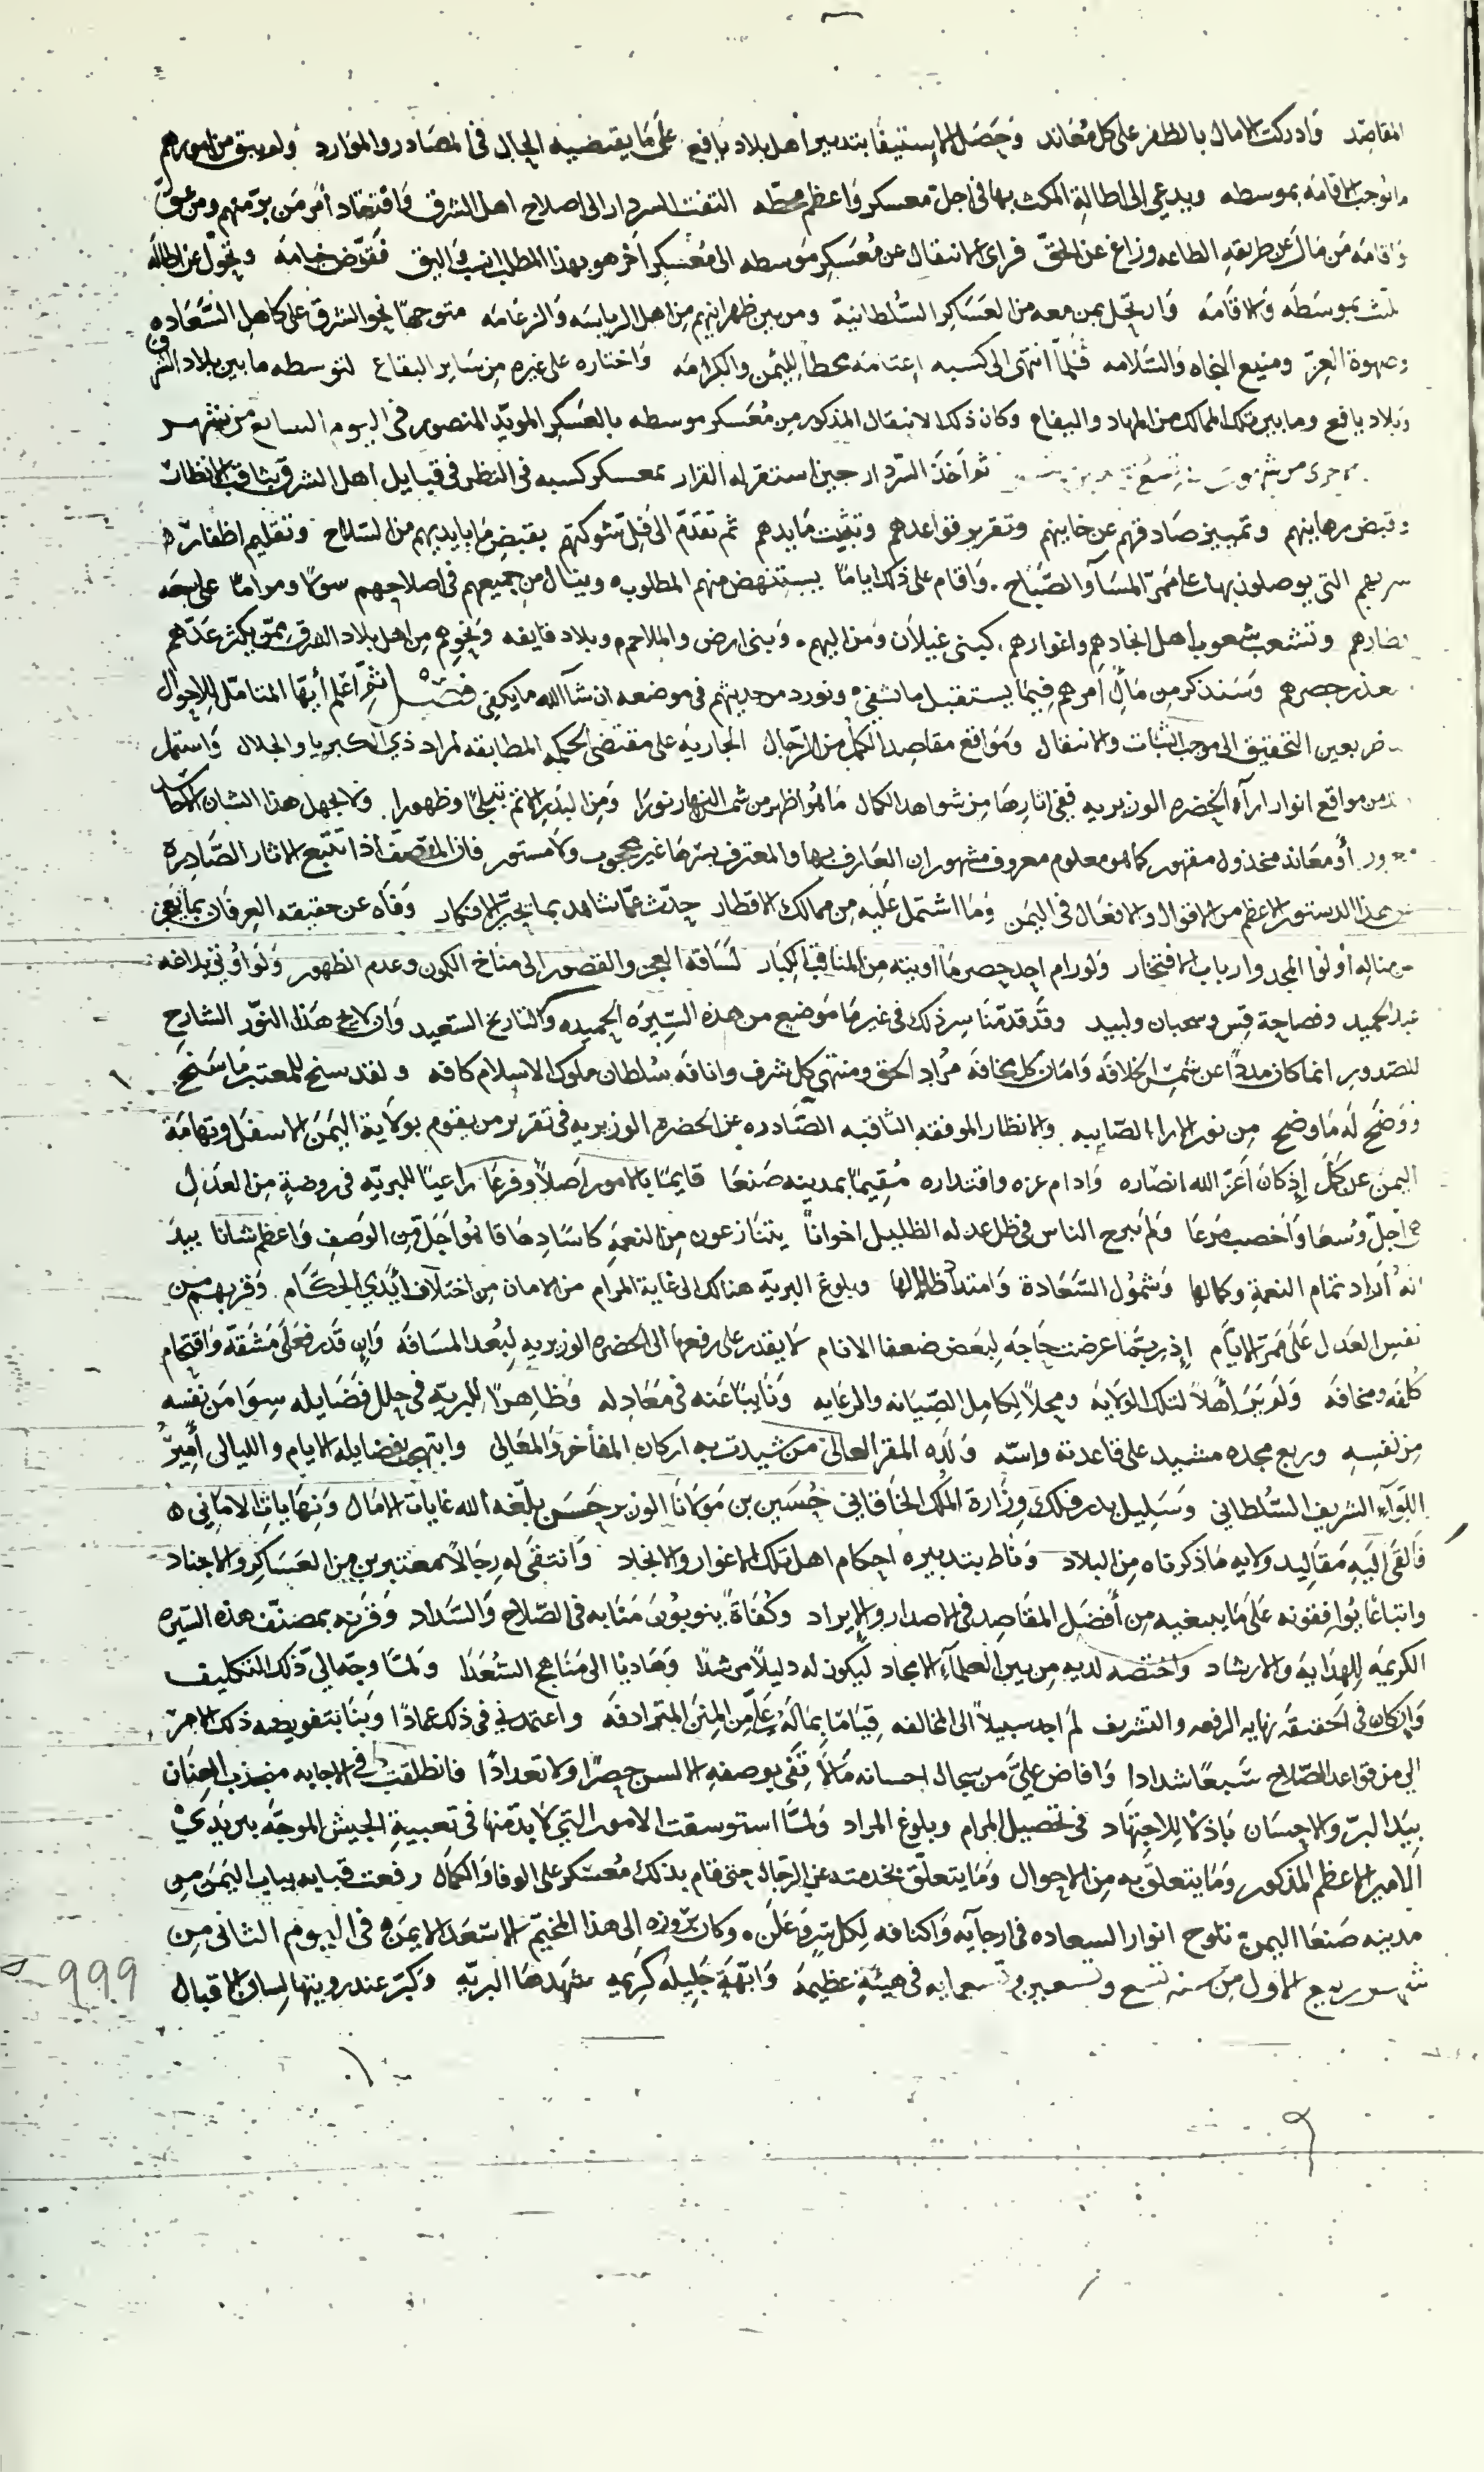 المقاصد وادركت الامال بالظفر على كل معاند وحصل الاستيفا بتدبير اهل بلاد يافع على ما يقتضيه الحال في المصادر والموارد ولم يبق من امورهم
ما توجب الاقامه بموسطه ويدعي الى اطالة المكث بها في اجل معسكر واعظم محطه التفت السردار الى اصلاح اهل الشرق وافتقاد امر من بر منهم ومن عق
واقامه من مال عن طريقه الطاعه وزاغ عن الحق فراى الانتقال عن معسكر موسطه الى معسكر اخر هو بهذا المطلب انسب واليق فقوض خيامه وتحول عن اطالة
اللبث بموسطه والاقامه وارتحل بمن معه من العساكر السلطانية ومن بين ظهرانيهم من اهل الرياسه والزعامه متوجها نحو الشرق على كاهل السعاده
وصهوة العز ومنيع الجاه والسلامه فلما انتهى الى كسبه اعتامه محطا لليمن والكرامه واختاره على غيره من ساير البقاع لتوسطه ما بين بلاد الشرق
وبلاد يافع وما بين تلك الممالك من المهاد والبقاع وكان ذلك الانتقال المذكور من معسكر موسطه بالعسكر المويد المنصور في اليوم السابع من شهر
ثم اخذ السردار حين استقر له القرار بمعسكر كسبه في النظر في قبايل اهل الشرق بثاقب الانظار
وقبض رهاينهم وتمييز صادقهم عن خاينهم وتقرير قواعدهم وتثبيت مايدهم ثم تقدم الى فل شوكتهم بقبض ما بايديهم من السلاح وتقليم اظفار
التي يصولون بها على ممر المسآ والصباح واقام على ذلك اياما يستنهض منهم المطلوب وينال من جميعهم في اصلاحهم سولا ومراما على بعد
وتشعب شعوب اهل انجادهم واغوارهم كبني غيلان ومن اليهم وبني ارض والملاحم وبلاد قايفه ونحوهم من اهل بلاد الشرق ممن يكثر عدهم
حصرهم وسنذكر من مآل امرهم فيما يستقبل ما شفي ونورد من حديثهم في موضعه ان شآ الله ما يكفي فصل ثم اعلم ايها المتامل للاحوال
بعين التحقيق الى موجب الثبات والانتقال ومواقع مقاصد الكمل من الرجال الجاريه على مقتضى الحكمه المطابقه لمراد ذي الكبريا والجلال واستمل
من مواقع انوار ارآء الحضره الوزيريه ففي اثارها من شواهد الكمال ما هو اظهر من شمس النهار نورا ومن البدر الاتم تجليا وظهورا ولا يجهل هذا الشان الا
او معاند مخذول مقهور كما هو معلوم معروف مشهور ان العارف بها والمعترف بسرها غير محجوب ولا مستور فان المنصف اذا تتبع الاثار الصادره
عن هذا الدستور الاعظم من الاقوال والافعال في اليمن وما اشتمل عليه من ممالك الاقطار حدث عما شاهد بما يحير الافكار وفاه عن حقيقه العرفان بما يعجز
عن مناله اولوا المجد وارباب الافتخار ولو رام احد حصر ما اوتيه من المناقب الكبار لساقه العجز والقصور الى مناخ الكمون وعدم الظهور ولو اوتي بلاغه
عبد الحميد وفصاحة قس وسحبان ولبيد وقد قدمنا سر ذلك في غير ما موضع من هذه السيره الحميده والتاريخ السعيد وان لايح هذا النور الشارح
للصدور انما كان مددا عن شمس الخلافه وامان كل مخافه مراد الحق ومنتهى كل شرف وانافه سلطان ملوك الاسلام كافه ولقد سنح للمعتبر ما سنح
ووضح له ما وضح من نور الارا الصايبه والانظار الموفقه الثاقبه الصادره عن الحضره الوزيريه في تقرير من يقوم بولاية اليمن الاسفل وتهامة
اليمن عن كمل اذ كان اعز الله انصاره وادام عزه واقتداره مقيما بمدينه صنعا قايما بالامور اصلا وفرعا راعيا للبريه في روضة من العدل
اجل وسعا واخصب مرعا ولم يبرح الناس في ظل عدله الظليل اخوانا يتنازعون من النعمة كاسا دهاقا هو اجل من الوصف واعظم شانا بيد
انه اراد تمام النعمة وكمالها وشمول السعادة وامتداد ظلالها وبلوغ البريه هنالك الى غاية المرام من الامان من اختلاف ايدي الحكام وقربهم من
نفس العدل على ممر الايام اذ ربما عرضت حاجه لبعض ضعفا الانام لا يقدر على رفعها الى الحضره الوزيريه لبعد المسافه وان قدر فعلى مشقة واقتحام
كلفه ومخافه ولم ير اهلا لتلك الولايه ومحلا لكامل الصيانه والرعايه ونايبا عنه في معادله وظاهرا للبريه في حلل فضايله سوا من نفسه
من نفسه وربع مجده مشيد على قاعدته واسه ولده المقر العالي من شيدت به اركان المفاخر والمعالي وابتهجت بفضايله الايام والليالي امير
اللوآء الشريف السلطاني وسليل بدر فلك وزارة الملك الخاقاني حسين بن مولانا الوزير حسن بلغه الله غايات الامال ونهايات الاماني
فالقى اليه مقاليد ولايه ما ذكرناه من البلاد وناط بتدبيره احكام اهل تلك الاغوار والانجاد وانتقى له رجالا معتبرين من العساكر والاجناد
واتباعا يوافقونه على ما يبتغيه من افضل المقاصد في الاصدار والايراد وكفاة ينوبون منابه في الصلاح والسداد وقرنه بمصنف هذه السيره
الكريمه للهدايه والارشاد واختصه لديه من بين العلمآء الامجاد ليكون له دليلا مرشدا وهاديا الى مناهج السعدا ولما وجه الي ذلك التكليف
وان كان في الحقيقه نهايه الرفعه والتشريف لم اجد سبيلا الى المخالفه قياما بما له علي من المنن المترادفه واعتمدني في ذلك عمادا وبنا بتفويضه ذلك الامر
الي من قواعد الصلاح سبعا شدادا وافاض علي من سجال احسانه ما لا تفي بوصفه الالسن حصرا ولا تعدادا فانطلقت في الاجابه منجذب العنان
بيد البر والاحسان باذلا للاجتهاد في تحصيل المرام وبلوغ المراد ولما استوسقت الامور التي لا بد منها في تعبية الجيش الموجه بين يدي
الامير الاعظم المذكور وما يتعلق به من الاحوال وما يتعلق بخدمته من الرجال حتى قام بذلك معسكر على الوفا والكمال رفعت قبابه بباب اليمن من
مدينه صنعا اليمن تلوح انوار السعاده في ارجآيه واكنافه لكل سر وعلن وكان بروزه الى هذا المخيم الاسعد الايمن في اليوم الثاني من
شهر ربيع الاول من سنه تسع وتسعين وتسعمايه في هيئة عظيمة وابهة جليله كريمه شهدها البريه وكبر عند رويتها لسان الاقبال
999